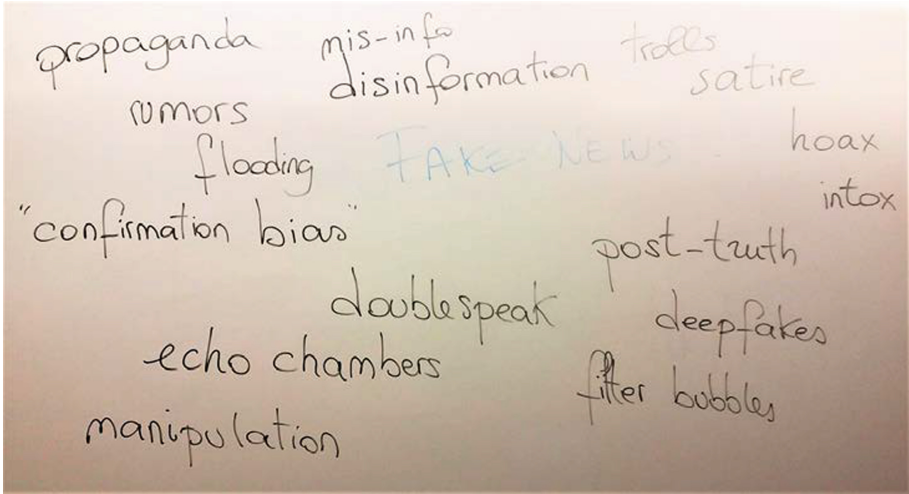 propaganda
mis-info
trolls
disinformation
satire
rumors
hoax
flooding
FAKE NEWS
intox
"confirmation bias"
post-truth
doublespeak
deepfakes
echo chambers
filter bubbles
manipulation